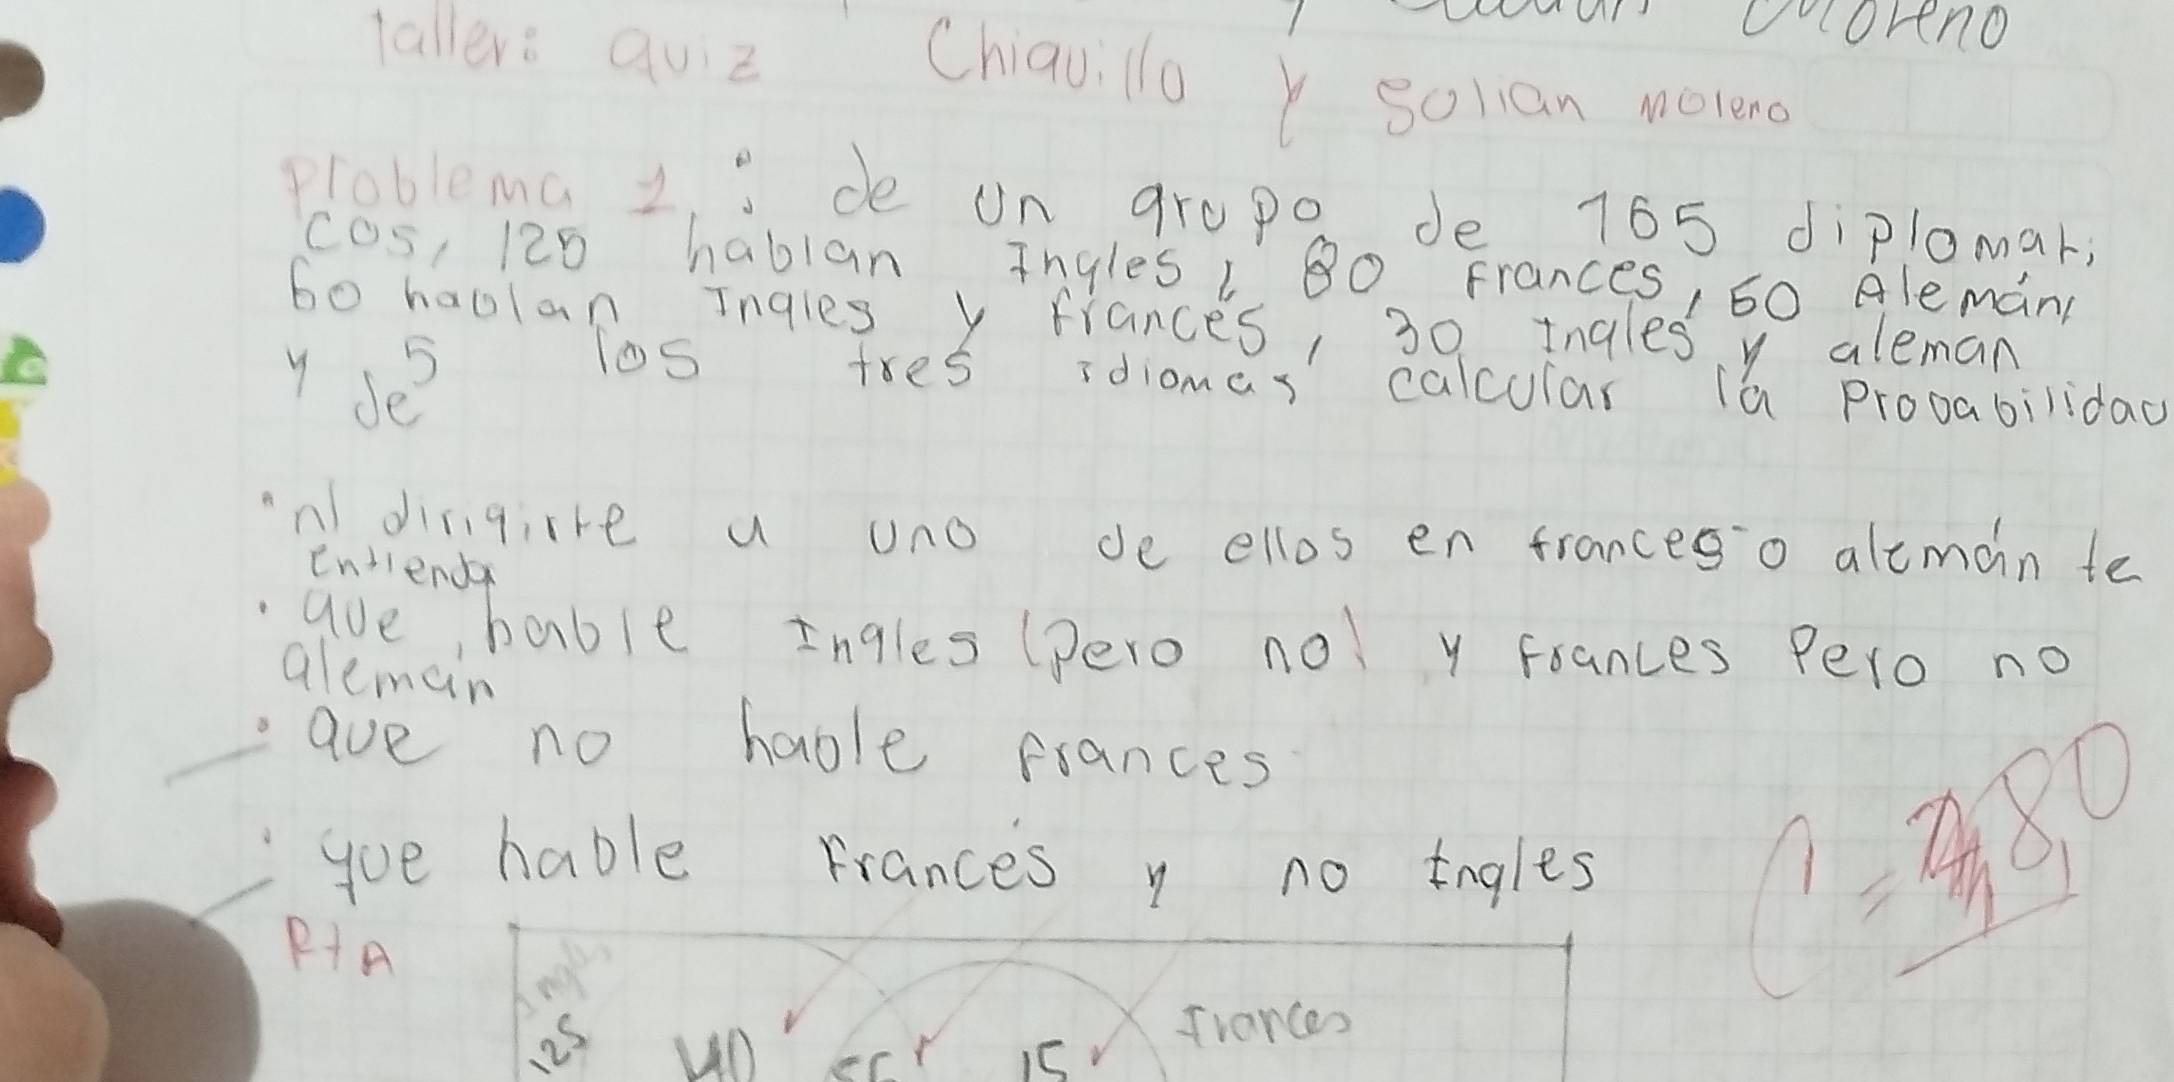 y Moreno
Taller: quiz Chiquillo y Solian moleno
problema 1: de un grupo de 165 diplomat;
cos, 125 hablan Ingles, 80 Frances, 50 Alemán,
60 hablan Ingles y francés, 30 Ingles y aleman
y 5 los tres idiomas calcular la Probabilidad
de
dirigirte a uno de ellos en frances o alemán te
entienda
• que hable Ingles (Pero no) y Frances Pero no
alemán
• que no hable Frances
• que hable Francés y no Ingles
RtA
C = 8,0
Ingles
Frances
125 40 55 15